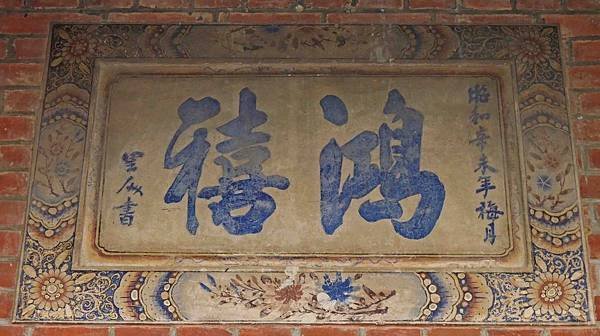 昭和辛未年梅月
鴻禧
書